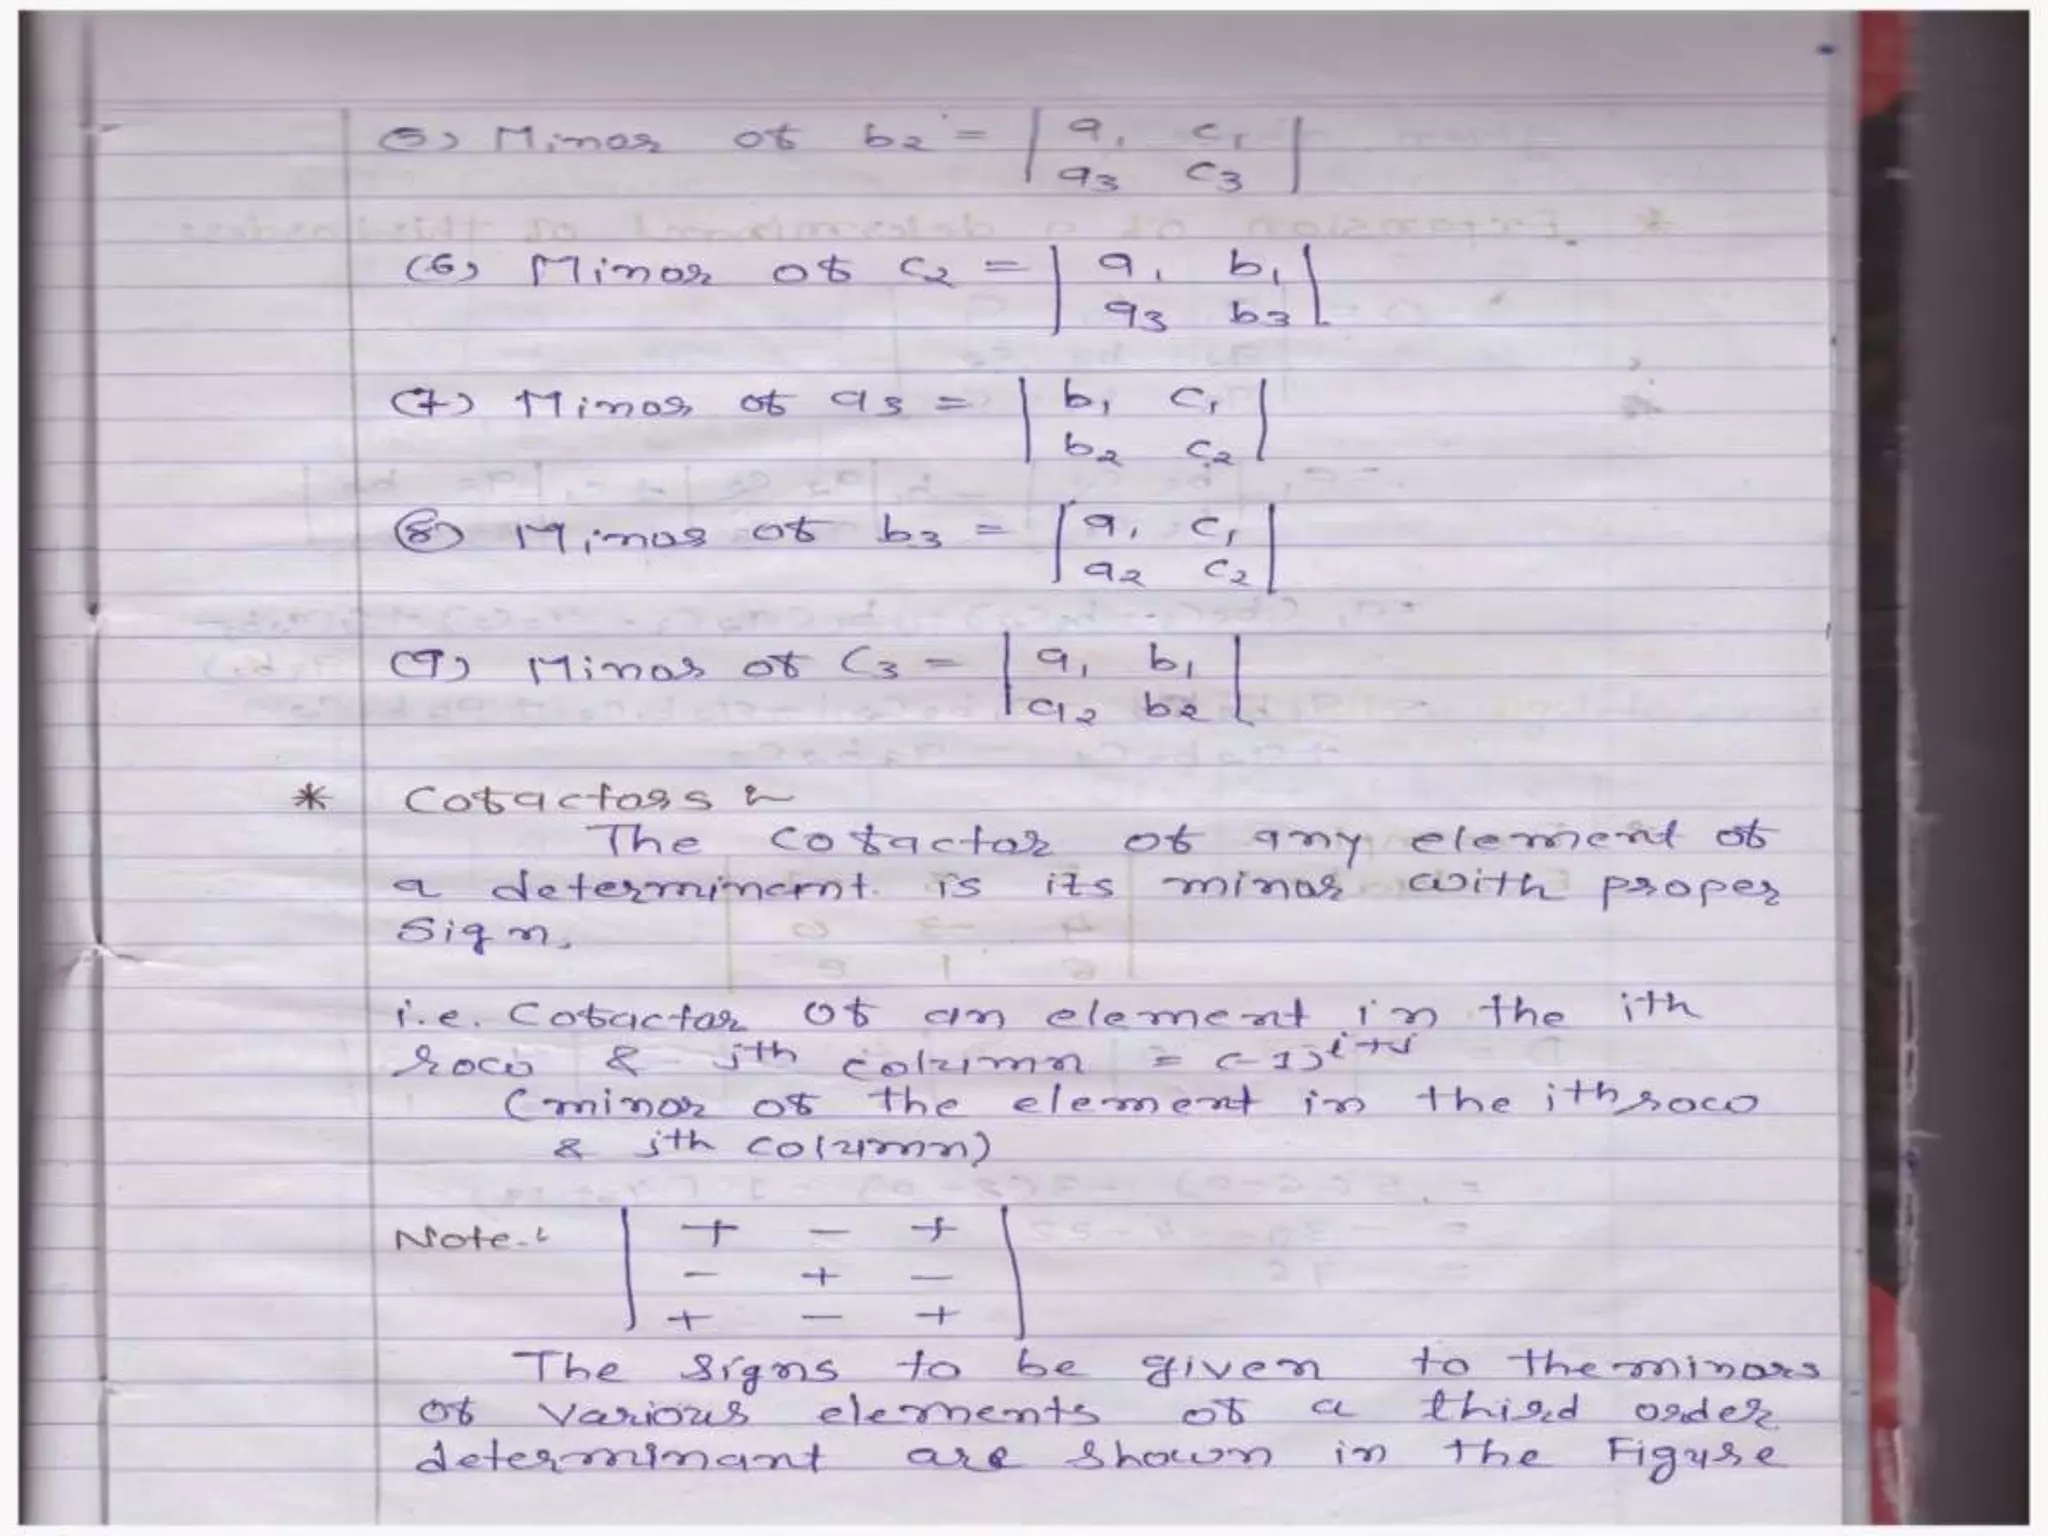 (5) Minor of b2 = | a1 c1 |
| a3 c3 |
(6) Minor of c2 = | a1 b1 |
| a3 b3 |
(7) Minor of a3 = | b1 c1 |
| b2 c2 |
(8) Minor of b3 = | a1 c1 |
| a2 c2 |
(9) Minor of C3 = | a1 b1 |
| a2 b2 |
* Cofactors :-
The cofactor of any element of
a determinent is its minor with proper
Sign.
i.e. Cofactor of an element in the ith
row & jth column = (-1)^i+j
(minor of the element in the ith row
& jth column)
Note:- | + - + |
| - + - |
| + - + |
The signs to be given to the minors
of various elements of a third order
determinant are shown in the Figure